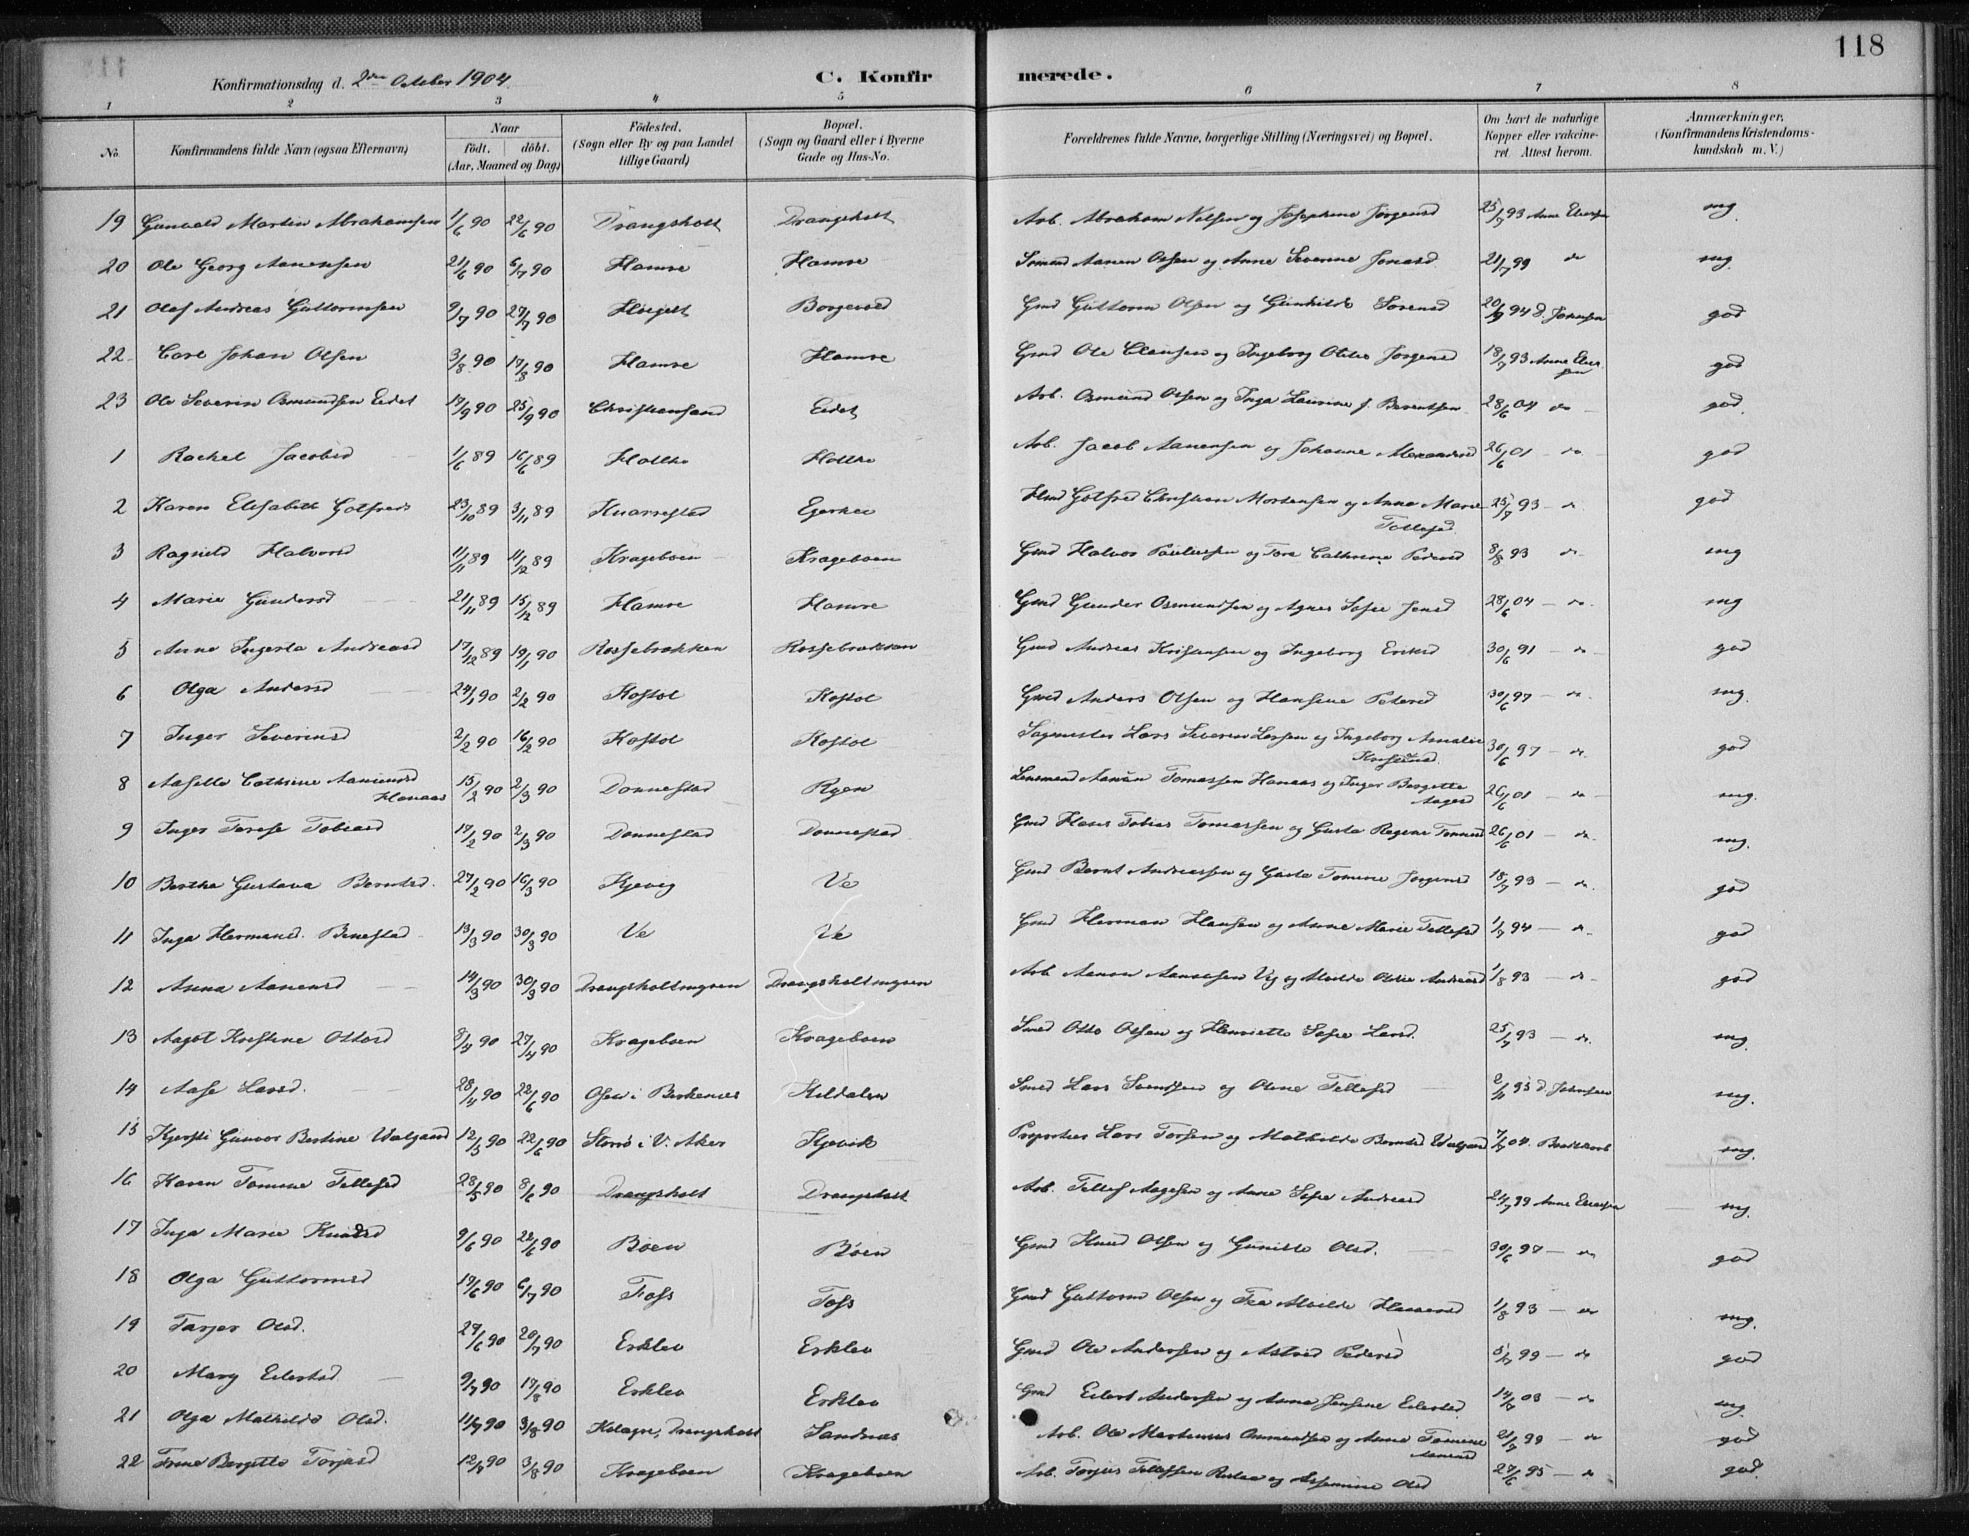 118
Konfirmationsdag d. 2den October 1904. C. Konfirmerede.
1 2 3 4 5 6 7 8
No. Konfirmandens fulde Navn (ogsaa Efternavn) Naar født. døbt. (Aar, Maaned og Dag) Fødested. (Sogn eller By og paa Landet tillige Gaard) Bopæl. (Sogn og Gaard eller i Byerne Gade og Hus-No. Forældrenes fulde Navne, borgerlige Stilling (Næringsvei) og Bopæl. Om havt de naturlige Kopper eller vakcineret. Attest herom. Anmærkninger, (Konfirmandens Kristendomskundskab m. V.)
19 Gunvald Martin Abrahamsen 1/6 90 22/6 90 Drangsholt Drangsholt Arb. Abraham Nilsen og Josephine Jørgensd 25/7 93 Anne mg.
20 Ole Georg Aanensen 21/6 90 6/7 90 Hamre Hamre Smed Aanen Olsen og Anne Severine Jensd. 21/7 99 do mg.
21 Olaf Andreas Guttormsen 9/7 90 27/7 90 Borgeraed Gmd Guttorm Olsen og Gunhilde Sørensd 20/9 94 god
22 Carl Johan Olsen 3/8 90 17/8 90 Hamre Hamre Gmd Ole Clausen og Ingeborg Otilie Jørgensd 18/7 93 Anne god
23 Ole Severin Osmundsen Eidet 17/9 90 25/9 90 Christiansand Eidet Arb. Osmund Olsen og Inga Laurine f. Berentsen 28/6 04 do god.
1 Rachel Jacobsd 1/6 89 16/6 89 Holtho Holtho Arb. Jacob Aanensen og Johanne Alexandersd 26/6 01 - do god
2 Karen Elisabeth Gotfreds 23/10 89 3/11 89 Kvarrestad Hmd Gotfred Christian Mortensen og Anna Marie Tellefsd 25/7 93 - do god
3 Ragnild Halvorsd 11/11 89 11/12 89 Krageboen Krageboen Gmd Halvor Paulussen og Tora Cathrine Pedersd 8/8 93 do mg
4 Marie Gundersd 21/11 89 15/12 89 Hamre Hamre Gmd Gunder Osmundsen og Agnes Sofie Jensd 28/6 04 - do. mg
5 Anne Ingerta Andreasd 17/12 89 19/1 90 Rossebrækken Rossebrækken Gmd Andreas Kristensen og Ingeborg Eriksd 30/6 91 - do god
6 Olga Andersd 24/1 90 2/2 90 Kostøl Kostøl Gmd Anders Olsen og Hansine Petersd 30/6 97 - do. mg.
7 Inger Severinsd 2/2 90 16/2 90 Kostøl Kostøl Sagmester Lars Severin Larsen og Ingeborg Amalie 30/6 97 - do. god
8 Aasille Cathrine Aanensd Hanaas 15/2 90 2/3 90 Donnestad Ryen Lensmand Aanen Tomassen Hanaas og Inger Birgitte Aagesd 26/6 01 - do - mg.
9 Inger Terese Tobiasd 17/2 90 2/3 90 Donnestad Donnestad Gmd Hans Tobias Tomassen og Gusta Regine Tomasd 26/6 01 - do. mg.
10 Bertha Gustava Berntsd. 27/2 90 16/3 90 Kjevig Ve Gmd Bernt Andreassen og Gusta Tomine Jørgensd 18/7 93 - do. god
11 Inga Hermansd. Benestad 13/3 90 30/3 90 Ve Ve Gmd Herman Hansen og Anne Marie Tellefsd 1/7 94 - do. god
12 Anna Aanensd 14/3 90 30/3 90 Drangsholtmyren Drangsholtmyren Arb Aanen Aanensen Vig og Alvilde Otilie Andreasd 1/8 93 - do god
13 Aagot Kristine Ottosd 8/4 90 27/4 90 Krageboen Krageboen Smed Otto Olsen og Henriette Sofie Larsd. 25/7 93 - do. mg.
14 Aase Larsd. 28/4 90 22/6 90 Osen i Birkenæs Kildalen Smed Lars Svendsen og Oline Tellefsd 2/11 93 mg.
15 Kjersti Gunvor Bertine Valgaard 12/5 90 22/6 90 Storø i V. Aker Kjevik Proprietær Lars Torsen og Mathilde Berntsd Valgaard 7/7 04 mg.
16 Karen Tomine Tellefsd 28/5 90 8/6 90 Drangsholt Drangsholt Arb. Tellef Aagesen og Anne Sofie Andreasd 24/7 99 Anne mg.
17 Inga Marie Knudsd 9/6 90 22/6 90 Bøen Bøen Gmd Knud Olsen og Gunille Olsd. 30/6 97 - do god
18 Olga Guttormsd 19/6 90 6/7 90 Foss Foss Gmd Guttorm Olsen og Tea Alvilde Hansensd 1/8 93 - do mg.
19 Tarjer Olsd. 29/6 90 20/7 90 Erklev Erklev Gmd Ole Andersen og Astrid Pedersd 5/7 99 - do god
20 Mary Eilertsd 9/7 90 17/8 90 Erklev Erklev Gmd Eilert Andersen og Anna Jensine Eilertsd. 14/7 03 - do mg.
21 Olga Mathilde Olsd. 11/7 90 3/8 90 Drangsholt Sandnæs Arb. Ole Martinius Osmundsen og Anne Tomine Aanensd 21/7 99 - do god
22 Birgitte Torjusd 12/7 90 3/8 90 Krageboen Krageboen Arb. Torjus Tellefsen og Olsd 27/6 95 - do god.